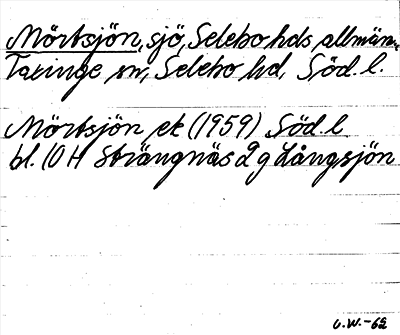 Mörtsjön, sjö, Selebo hds allmän.,
Taxinge sn, Selebo hd, Söd. l.
Mörtsjön ek (1959) Söd. l
bl. 10 H Strängnäs 2 g Långsjön
O.W.-62